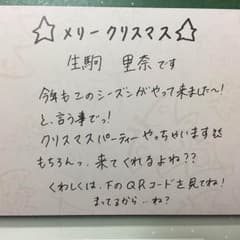 ☆メリークリスマス☆
生駒 里奈です
今年もこのシーズンがやって来ました〜!
と、言う事でっ!
クリスマスパーティーやっちゃいます!!
もちろんっ、来てくれるよね??
くわしくは、下のQRコードを見てね!
まってるから…ね?